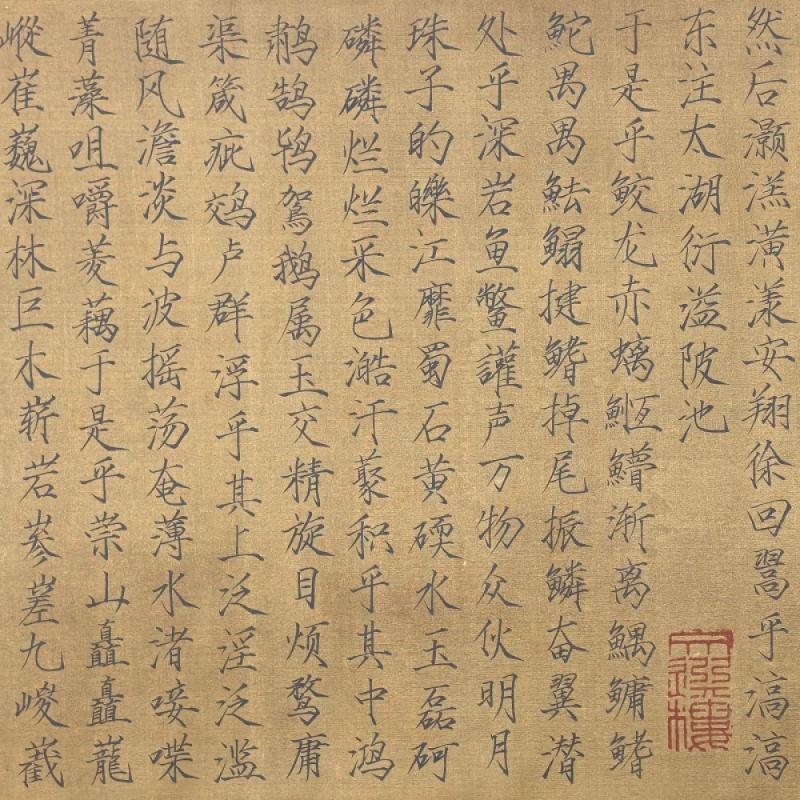 然后灏溔潢漾安翔徐回翯乎滈滈
东注太湖衍溢陂池
于是乎鲛龙赤螭䱭䲛渐离鰅鳙鳍
鮀禺禺魼鳎揵鳍掉尾振鳞奋翼潜
处乎深岩鱼鳖讙声万物众伙明月
珠子的皪江靡蜀石黄碝水玉磊砢
磷磷烂烂采色澔汗藂积乎其中鸿
鹔鹄鸨鴐鹅属玉交精旋目烦鹜庸
渠箴疵䴔卢群浮乎其上泛淫泛滥
随风澹淡与波摇荡奄薄水渚唼喋
菁藻咀嚼菱藕于是乎崇山矗矗巃
嵷崔巍深林巨木崭岩嵾嵳九嵕嶻